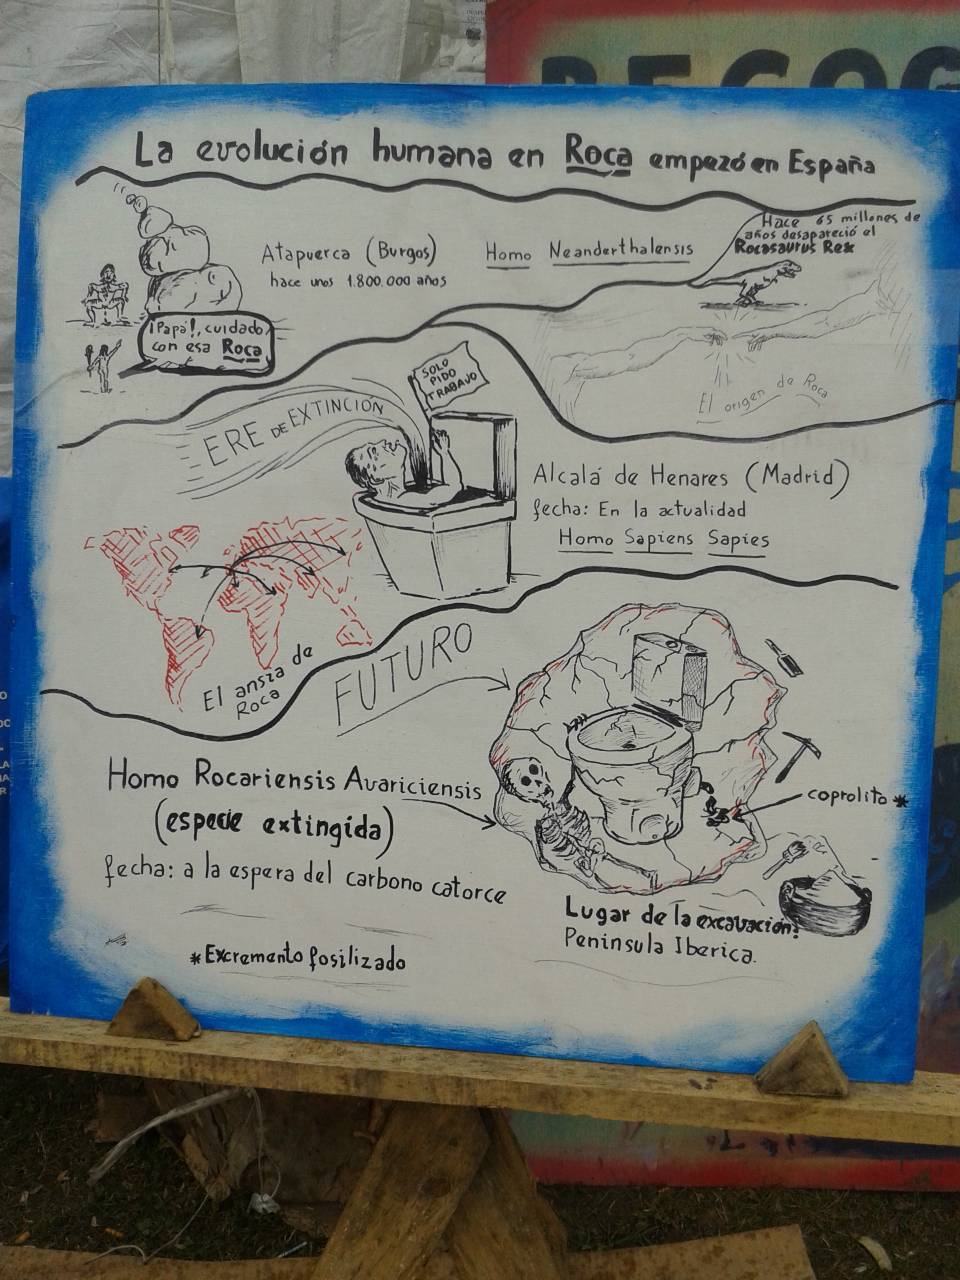 La evolución humana en Roca empezó en España
Hace 65 millones de
años desapareció el
Rocasaurus Rex
Atapuerca (Burgos)
hace unos 1.800.000 años
Homo Neanderthalensis
¡Papá!, cuidado,
con esa Roca
El origen de Roca
SOLO
PIDO
TRABAJO
ERE DE EXTINCIÓN
Alcalá de Henares (Madrid)
fecha: En la actualidad
Homo Sapiens Sapies
El ansia de
Roca
FUTURO
Homo Rocariensis Avariciensis
(especie extingida)
fecha: a la espera del carbono catorce
coprolito *
Lugar de la excavación:
Peninsula Iberica.
*Excremento fosilizado